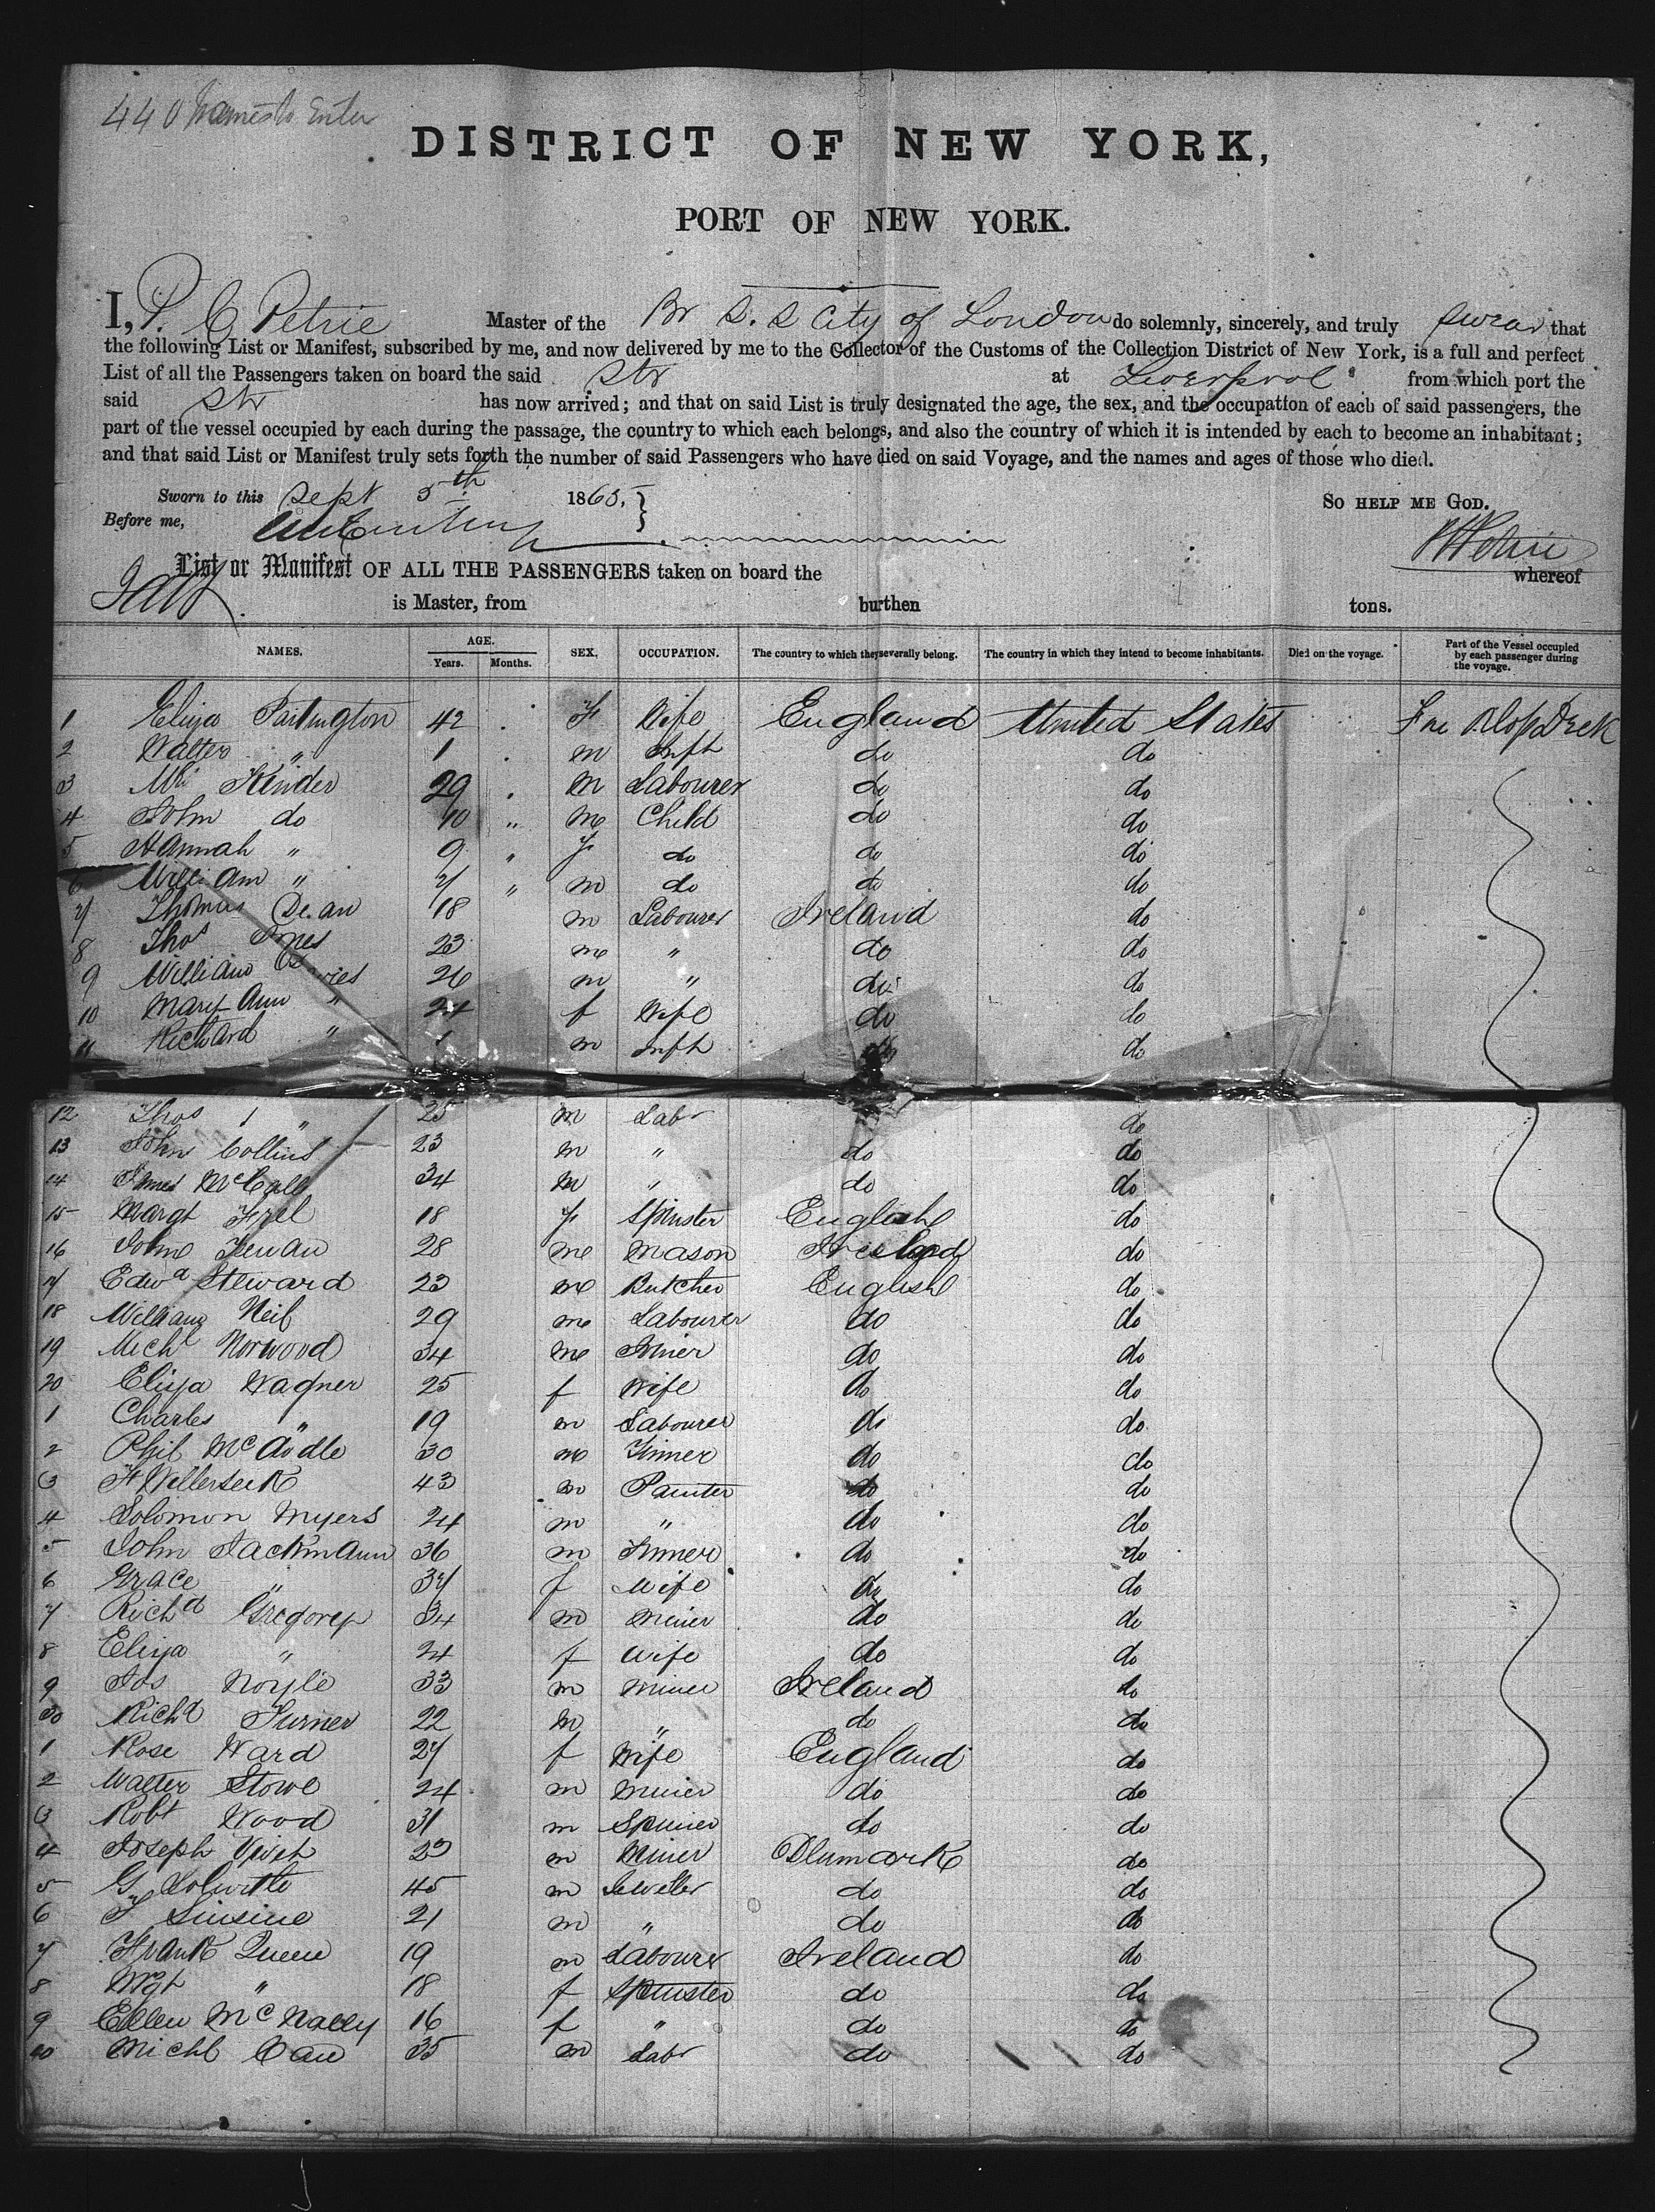 440 Names to Enter
DISTRICT OF NEW YORK,
PORT OF NEW YORK.
I, P. C Petrie Master of the Br S. S City of London do solemnly, sincerely, and truly swear that
the following List or Manifest, subscribed by me, and now delivered by me to the Collector of the Customs of the Collection District of New York, is a full and perfect
List of all the Passengers taken on board the said Str at Liverpool from which port the
said Str has now arrived; and that on said List is truly designated the age, the sex, and the occupation of each of said passengers, the
part of the vessel occupied by each during the passage, the country to which each belongs, and also the country of which it is intended by each to become an inhabitant;
and that said List or Manifest truly sets forth the number of said Passengers who have died on said Voyage, and the names and ages of those who died.
Sworn to this Sept 5th 1865. } SO HELP ME GOD.
Before me, Petrie
List or Manifest OF ALL THE PASSENGERS taken on board the whereof
is Master, from burthen tons.
NAMES. AGE. Years. Months. SEX. OCCUPATION. The country to which they severally belong. The country in which they intend to become inhabitants. Died on the voyage. Part of the Vessel occupied by each passenger during the voyage.
1 Eliza Partington 42 F Wife England United States
2 Walter " 1 m Inft do do
3 Wm Kinder 29 m Labourer do do
4 John do 10 " m Child do do
5 Hannah " 9 " f do do do
6 William " 7 " m do do do
7 Thomas Dean 18 m Labourer Ireland do
8 Thos Jones 23 m " do do
9 William Davies 26 m " do do
10 Mary Ann " 24 f Wife do do
11 Richard " m Inft do do
12 Thos " 25 m Labr do
13 John Collins 23 m " do do
14 James McCall 34 m " do do
15 Margt 18 f Spinster English do
16 John 28 m Mason Ireland do
7 Edwd Steward 23 m Butcher English do
18 William Neil 29 m Labourer do do
19 Michl Norwood 34 m do do
20 Eliza Wagner 25 f Wife do do
1 Charles " 19 m Labourer do do
2 Phil McArdle 30 m do do
3 43 m Painter do do
4 Solomon Myers 24 m " do do
5 John Jackmann 36 m do do
6 Grace " 37 f Wife do do
7 Richd Gregory 34 m Miner do do
8 Eliza " 24 f Wife do do
9 Jos Noyle 33 m Miner Ireland do
30 Richd Turner 22 m " do do
1 Rose Ward 27 f Wife England do
2 Walter Stowe 24 m Miner do do
3 Robt Wood 31 m do do
4 Joseph 23 m Miner Dlumark do
5 G 45 m Jeweller do do
6 21 m " do do
7 Frank Queen 19 m Labourer Ireland do
8 Mgt " 18 f Spinster do do
9 Ellen McNally 16 f " do do
40 Michl 35 m Labr do do